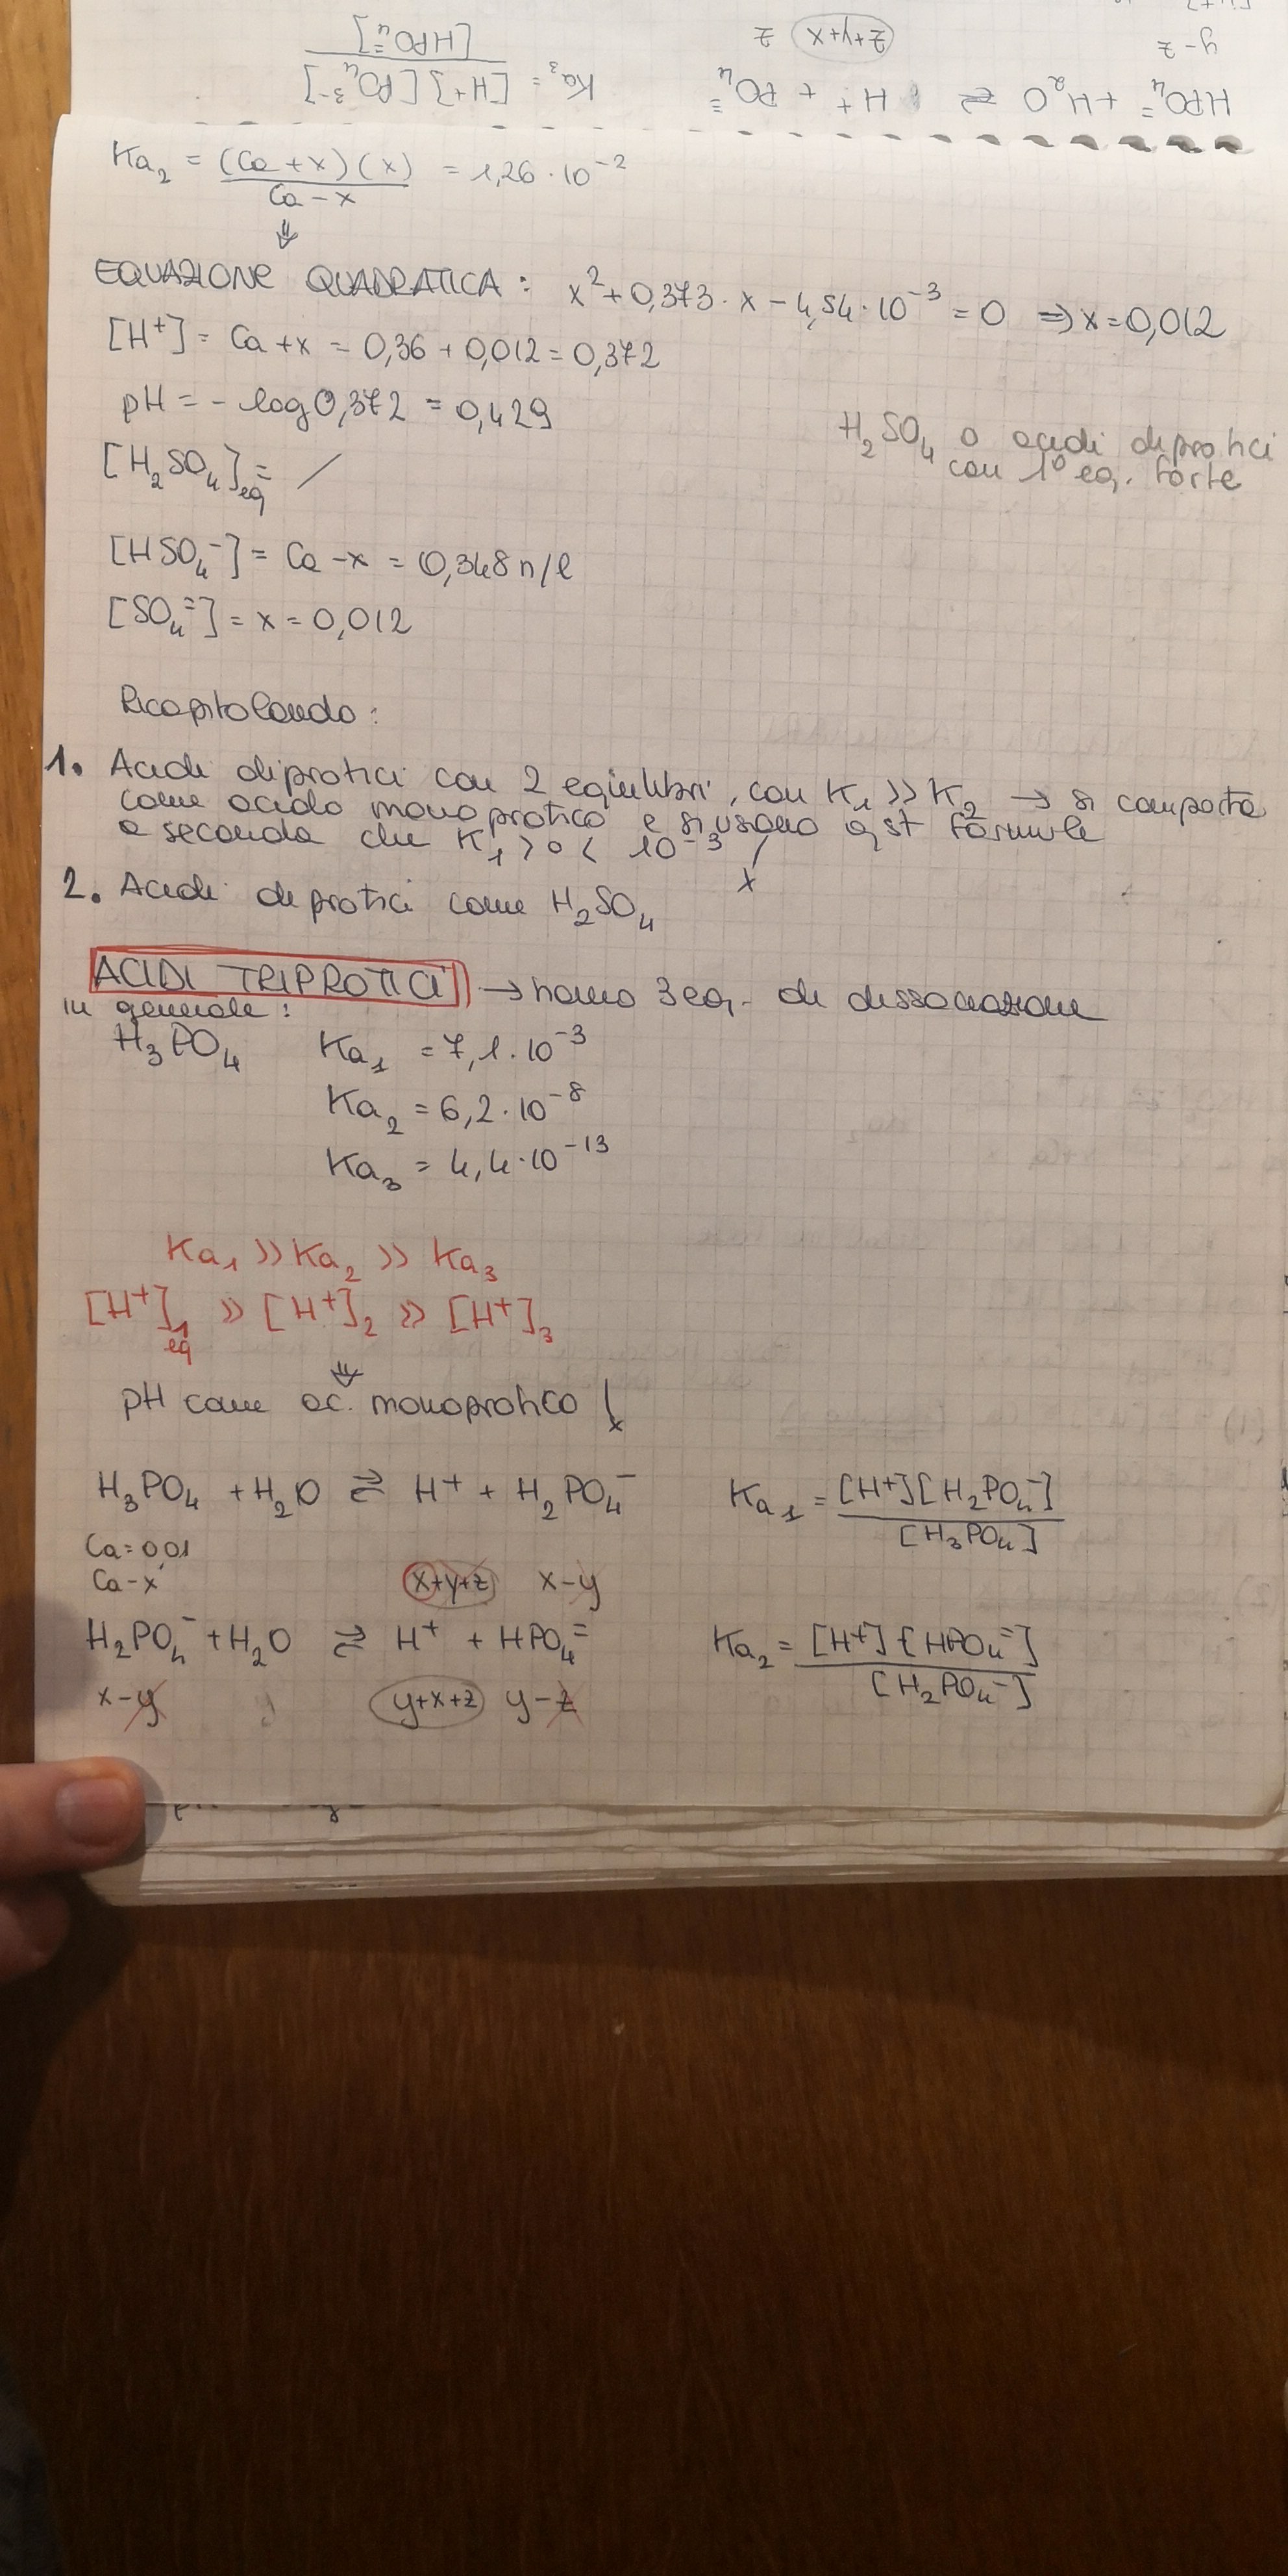 HPO₄⁼ + H₂O ⇌ H+ + PO₄³⁻ Ka₃ = [H+] [PO₄³⁻] / [HPO₄⁼]
y-z z+y+x z
Ka₂ = (Ca + x) (x) / Ca - x = 1,26 · 10⁻²
⇓
EQUAZIONE QUADRATICA: x² + 0,373 · x - 4,54 · 10⁻³ = 0 ⇒ x = 0,012
[H⁺] = Ca + x = 0,36 + 0,012 = 0,372
pH = - log 0,372 = 0,429
H₂SO₄ o acidi diprotici
con 1° eq. forte
[H₂SO₄]eq = /
[HSO₄⁻] = Ca - x = 0,348 n/l
[SO₄⁼] = x = 0,012
Ricapitolando:
1. Acidi diprotici con 2 equilibri, con K₁ >> K₂ → si comporta
come acido monoprotico e si usano qst formule
a seconda che K₁ > o < 10⁻³
2. Acidi diprotici come H₂SO₄
ACIDI TRIPROTICI → hanno 3 eq. di dissociazione
in generale:
H₃PO₄ Ka₁ = 7,1 · 10⁻³
Ka₂ = 6,2 · 10⁻⁸
Ka₃ = 4,4 · 10⁻¹³
Ka₁ >> Ka₂ >> Ka₃
[H⁺]₁ >> [H⁺]₂ >> [H⁺]₃
eq
⇓
pH come ac. monoprotico
H₃PO₄ + H₂O ⇌ H⁺ + H₂PO₄⁻ Ka₁ = [H⁺][H₂PO₄⁻] / [H₃PO₄]
Ca = 0,01
Ca - x x+y+z x-y
H₂PO₄⁻ + H₂O ⇌ H⁺ + HPO₄⁼ Ka₂ = [H⁺] · [HPO₄⁼] / [H₂PO₄⁻]
x-y y+x+z y-z